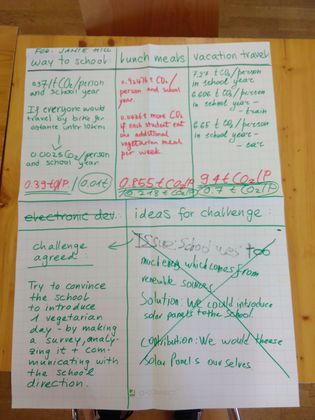 FOR: JANIE HILL
way to school
0.371t CO₂/person
and school year
If everyone would
travel by bike for
distance under 10km:
→
0.0025 CO₂/person
and school year
0.39t0/P / 0.01t
lunch meals
CO₂/
person and school
year.
more CO₂
if each student eat
one additional
vegetarian meal
per week.
0.855 t CO₂/P
0.218 t CO₂/P
vacation travel
CO₂/person
in school year
6.606 t CO₂/person
in school year -
- train
6.65 t CO₂/person
in school year -
- car
9.4 t CO₂/P
0.7 t CO₂/P
electronic dev.:
challenge
agreed:
Try to convince
the school
to introduce
1 vegetarian
day - by making
a survey, analy-
zing it + com-
municating with
the school
direction.
ideas for challenge:
Issue: School uses too
much energy which comes from
sources
Solution: We could introduce
solar panels to the school.
Contribution: We would
Solar Panels our selves